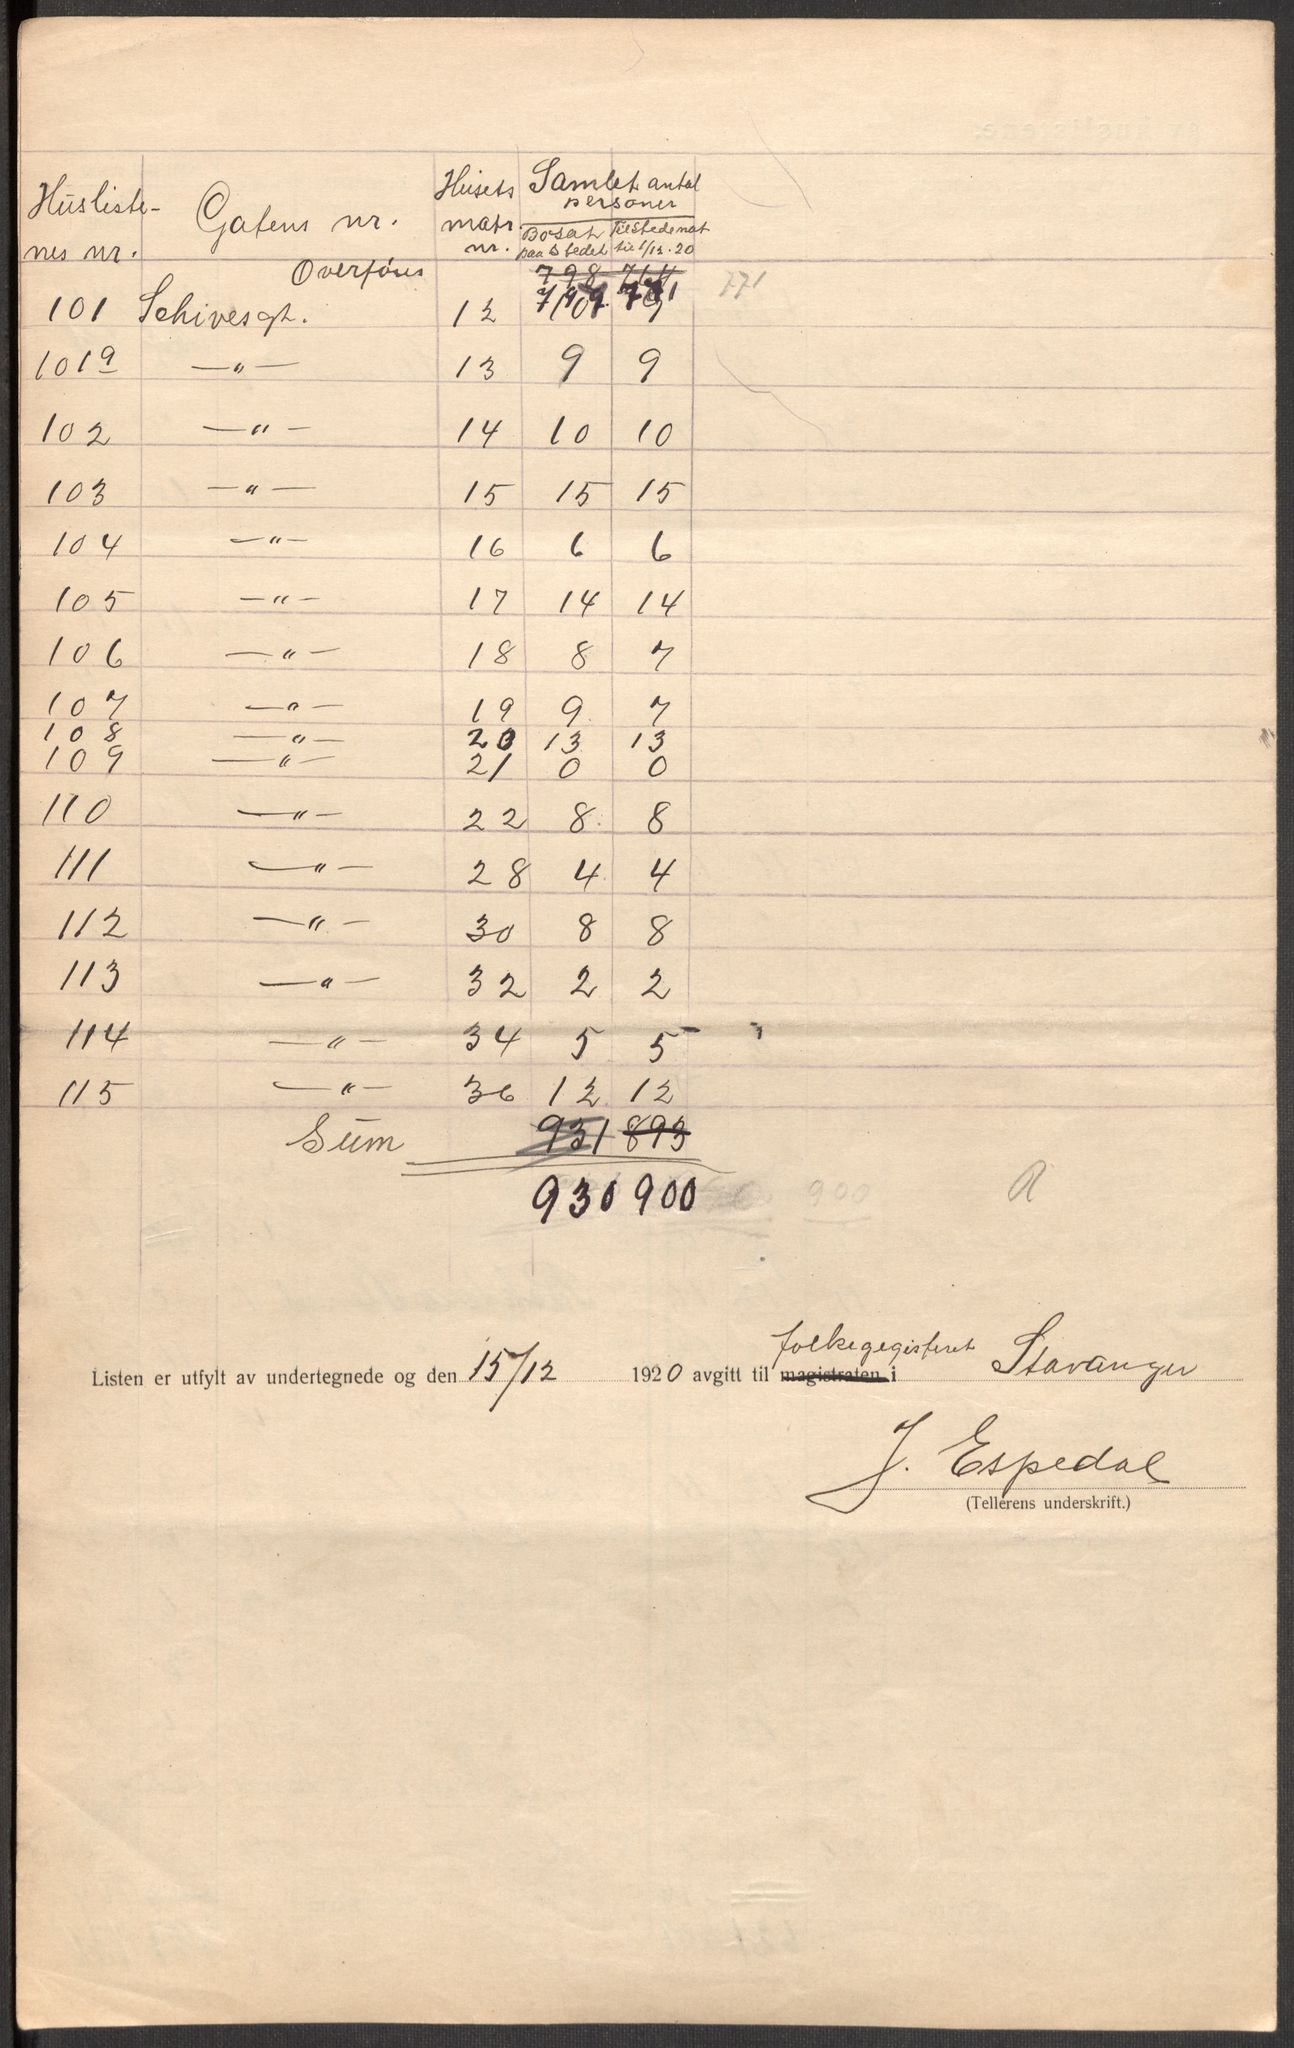 Husliste-
nes nr.
Gatens nr.
Husets
matr.
nr.
Samlet antal
personer
Bosat
paa stedet
Tilstedenat
til 1/12.20
Overføres 798
771
101 Schivesgt. 12 10 9
101a —"— 13 9 9
102 —"— 14 10 10
103 —"— 15 15 15
104 —"— 16 6 6
105 —"— 17 14 14
106 —"— 18 8 7
107 —"— 19 9 7
108 —"— 20 13 13
109 —"— 21 0 0
110 —"— 22 8 8
111 —"— 28 4 4
112 —"— 30 8 8
113 —"— 32 2 2
114 —"— 34 5 5
115 —"— 36 12 12
Sum 931 893
930 900 900
Listen er utfylt av undertegnede og den 15/12 1920 avgitt til magistraten i folkegegisteret Stavanger
J. Espedal
(Tellerens underskrift.)